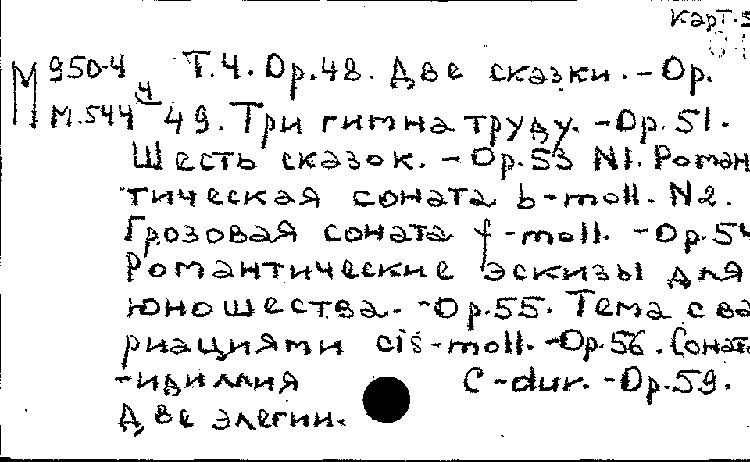 Карт.
М 950-4 Т.4. Ор.48. Две сказки. - Ор.
М.544 4 49. Три гимна труду. - Ор.51.
Шесть сказок. - Ор.53 N1. Роман
тическая соната b-moll. N2.
Грозовая соната f-moll. - Ор.54
Романтические эскизы для
юношества. - Ор.55. Тема с ва
риациями cis-moll. - Ор.56. Сонат
-идиллия C-dur. - Ор.59.
Две элегии.